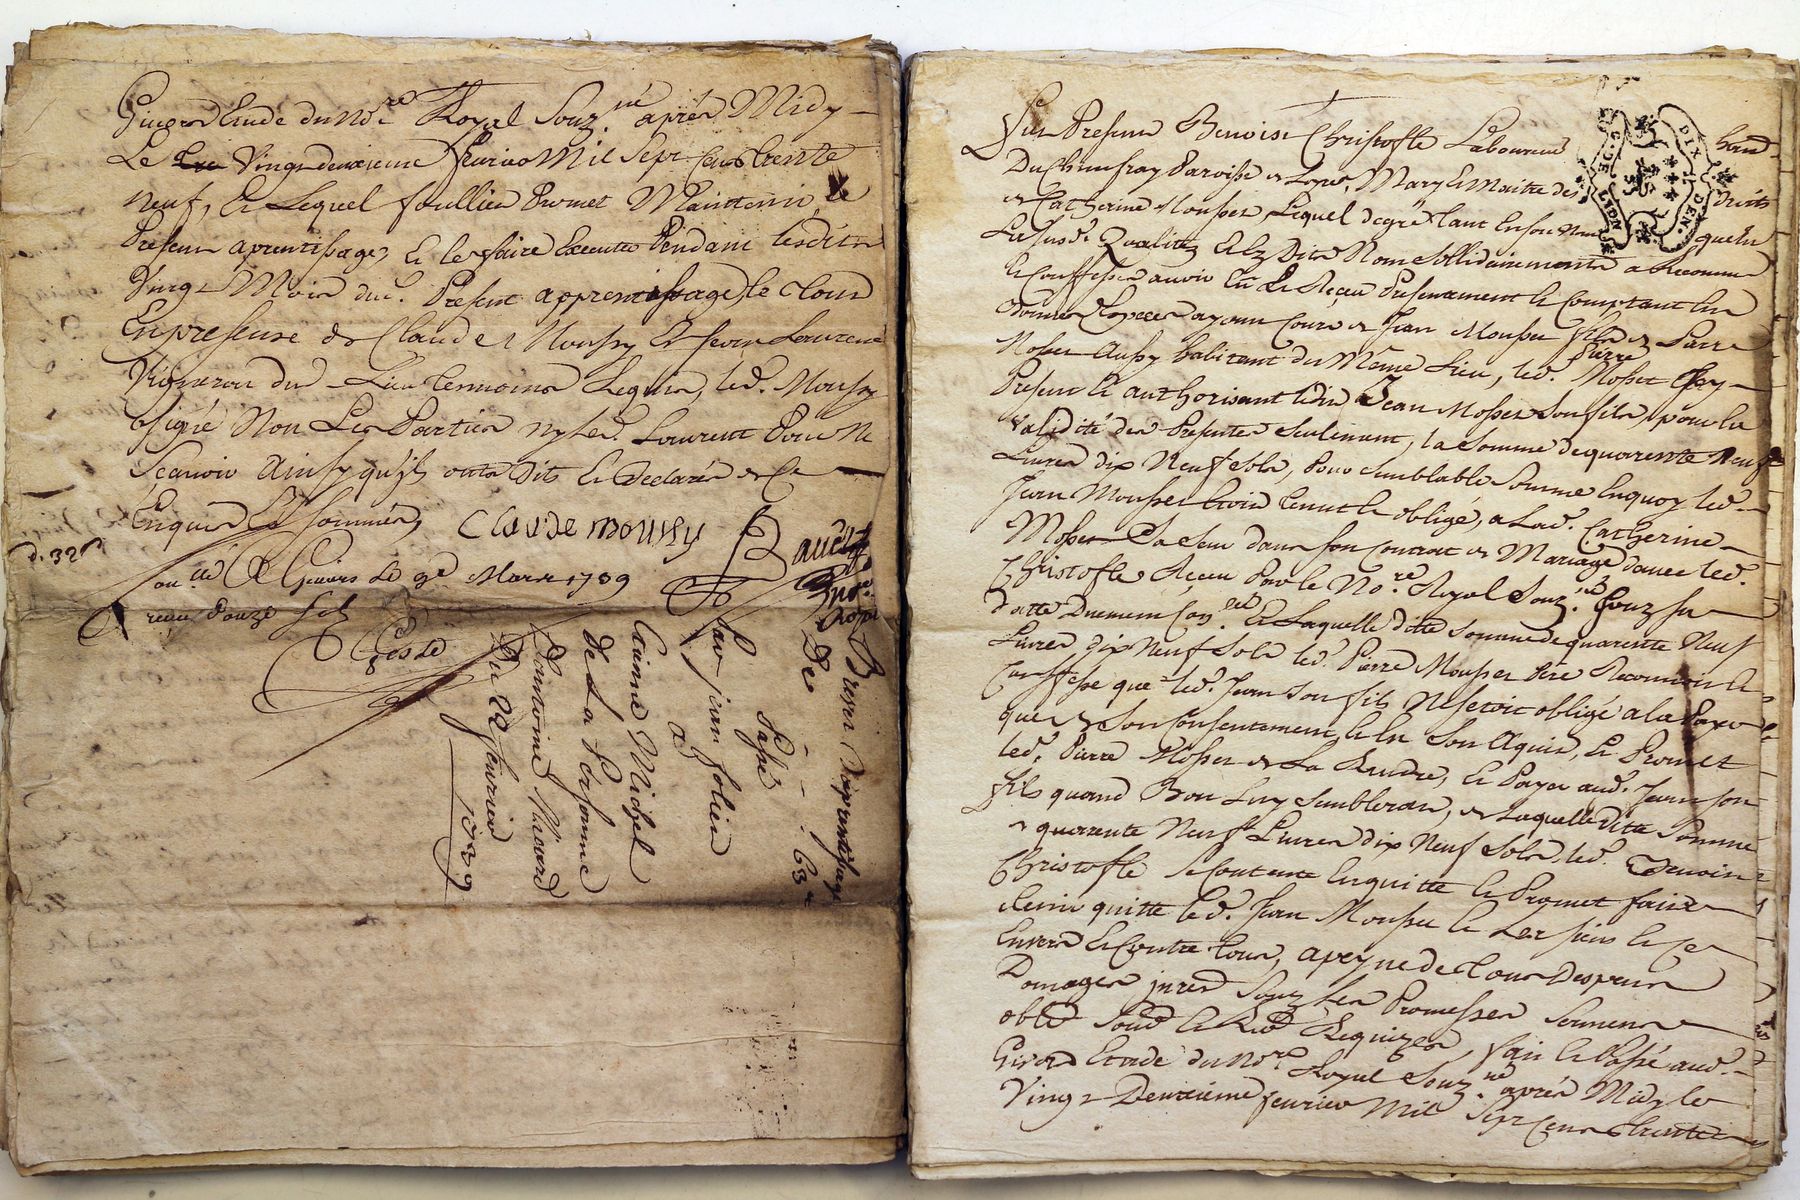 Givord Etude du No.re Royal Souz.né après Midy
Le Vingt deuxieme feurier Mil Sept Cens trente
neuf, Et Lequel foullien Promet Maintenir le
Present aprentissage, et le faire Executer Pendant lesdits
Vingt Mois dud. Present apprentissage, le tout
En presence de Claude Moussy Et Jean Laurent
Vigneron dud Lieu temoins Requis, led. Moussy
a signé Non Les Parties ny led. Laurent Pour Ne
Scavoir Ainsy qu'ils onts dits et declarés de Ce
Enquis Et Sommés,
Claude Moussy
d. 32
Con.llé A Givors Le 9e Mars 1739
receu Douze sols
Brevet d'aprentissage
De 63
Passé
Par jean folien
a
Etienne Michel
de La Personne
D'antoine
Du 22 feurier 1739
Fut Present Benoist Christofle Laboureur
Du Chinfray Paroisse de Loyre, Mary et Maitre des droits
de Catherine Mousset, Lequel degré tant En son Nom que En
Les susd. Qualitez Et Ez Dits Noms Sollidairements a Reconnu
et Confessé avoir Eu et Reçeu Presentement et Comptant En
bonnes Especes ayant Cours de Jean Mousset fils de Pierre
Mosset Aussy habitant du Même Lieu, led. Pierre Mosset Icy
Present et authorisant ledit Jean Mosset son fils, pour la
Validité des Presentes Seulement, la Somme de quarente Neuf
Livres dix Neuf Sols, Pour Semblable Somme En quoy led.
Jean Mousset Etoit tenut et obligé, a Lad. Catherine
Mosset Sa Seur dans son Contrat de Mariage d'avec led.
Christofle Reçeu Par le No.re Royal Souz.né Souz Sa
datte Duement Con.lé Et Laquelle ditte Somme de quarente Neuf
Livres dix Neuf Sols led. Pierre Mousset Pere Reconnoit et
Confesse que led. Jean Son fils Ne setoit obligé a la Payer
que de Son Consentement et En Son Aquit, Et Promet
led. Pierre Mosset de La Rendre, et Payer aud. Jean son
fils quand Bon Luy Semblera, de Laquelle ditte Somme
de quarente Neuf Livres dix Neuf Sols, led. Benoist
Christofle Se Contente En quitte et Promet faire
tenir quitte led. Jean Mousset et Les siens et Ce
Envers Et Contre tous, a peyne de tous Despens
Domages jnterd Souz Les Promesses Serments
obled Soud et Red Requizes, fait et Passé aud.
Givord Etude du No.re Royal Souz.né après Midy le
Vingt Deuxiéme feurier Mil Sept Cens trente